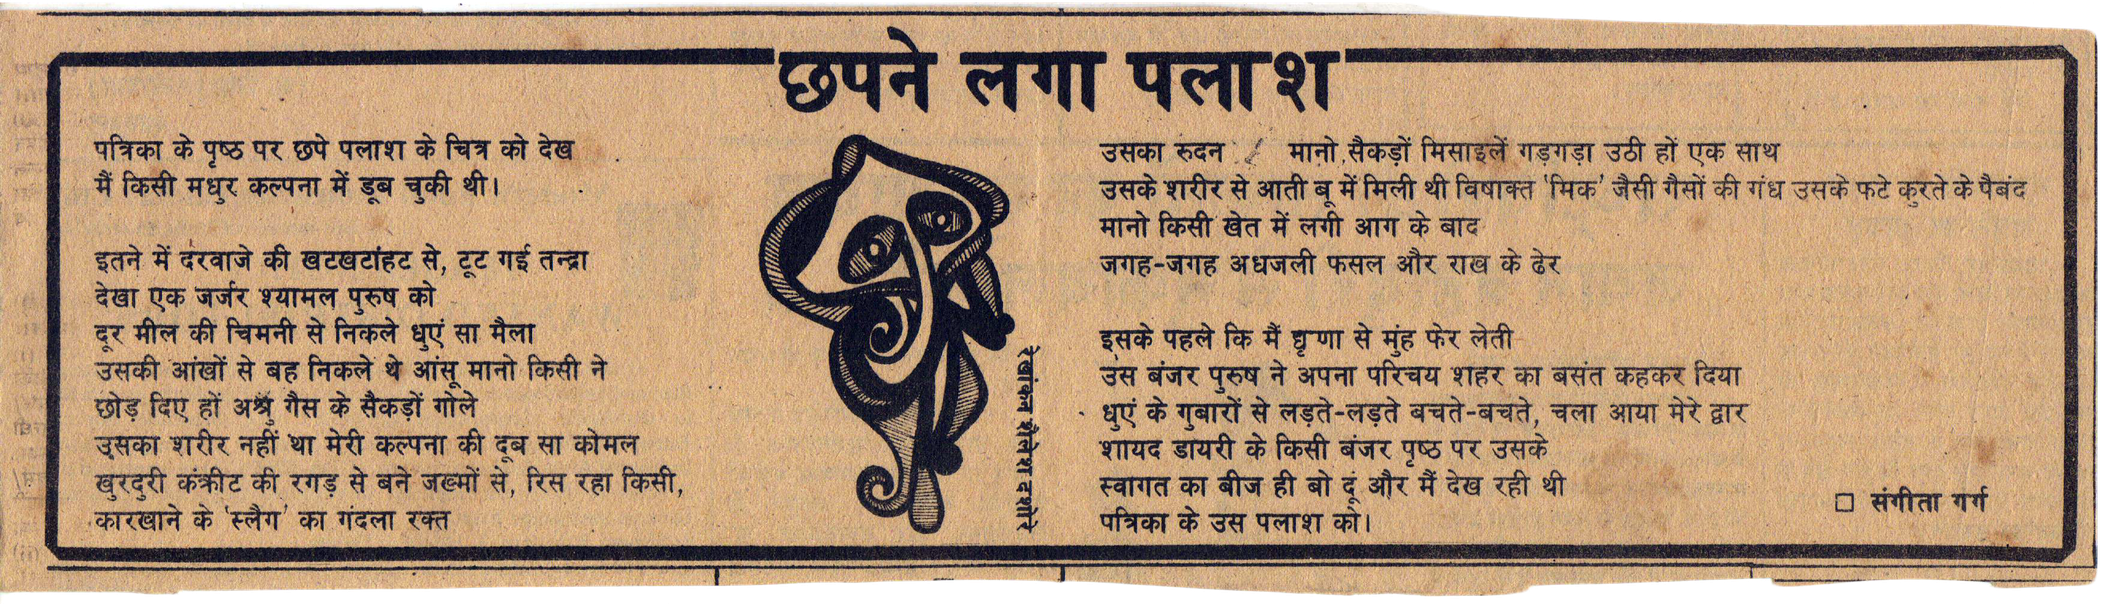 छपने लगा पलाश
पत्रिका के पृष्ठ पर छपे पलाश के चित्र को देख
मैं किसी मधुर कल्पना में डूब चुकी थी।
इतने में दरवाजे की खटखटांहट से, टूट गई तन्द्रा
देखा एक जर्जर श्यामल पुरुष को
दूर मील की चिमनी से निकले धुएं सा मैला
उसकी आंखों से बह निकले थे आंसू मानो किसी ने
छोड़ दिए हों अश्रु गैस के सैकड़ों गोले
उसका शरीर नहीं था मेरी कल्पना की दूब सा कोमल
खुरदुरी कंक्रीट की रगड़ से बने जख्मों से, रिस रहा किसी,
कारखाने के 'स्लैग' का गंदला रक्त
रेखांकन शैलेश दशोरे
उसका रुदन मानो सैकड़ों मिसाइलें गड़गड़ा उठी हों एक साथ
उसके शरीर से आती बू में मिली थी विषाक्त 'मिक' जैसी गैसों की गंध उसके फटे कुरते के पैबंद
मानो किसी खेत में लगी आग के बाद
जगह-जगह अधजली फसल और राख के ढेर
इसके पहले कि मैं घृणा से मुंह फेर लेती
उस बंजर पुरुष ने अपना परिचय शहर का बसंत कहकर दिया
धुएं के गुबारों से लड़ते-लड़ते बचते-बचते, चला आया मेरे द्वार
शायद डायरी के किसी बंजर पृष्ठ पर उसके
स्वागत का बीज ही बो दूं और मैं देख रही थी
पत्रिका के उस पलाश को।
□ संगीता गर्ग